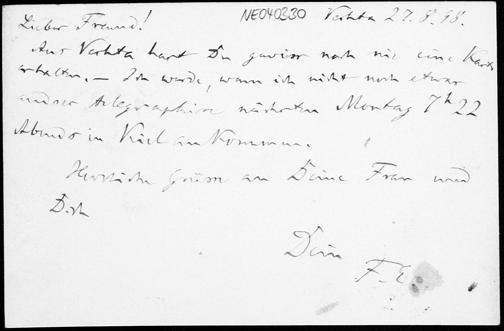 NE040330 Vechta 27.8.98.
Lieber Freund!
Aus Vechta hast Du gewiss noch nie eine Karte
erhalten. – Ich werde, wenn ich nicht noch etwas
anderes telegraphire nächsten Montag 7h22
Abends in Kiel ankommen.
Herzliche Grüsse an Deine Frau und
Dich
Dein
F. E.